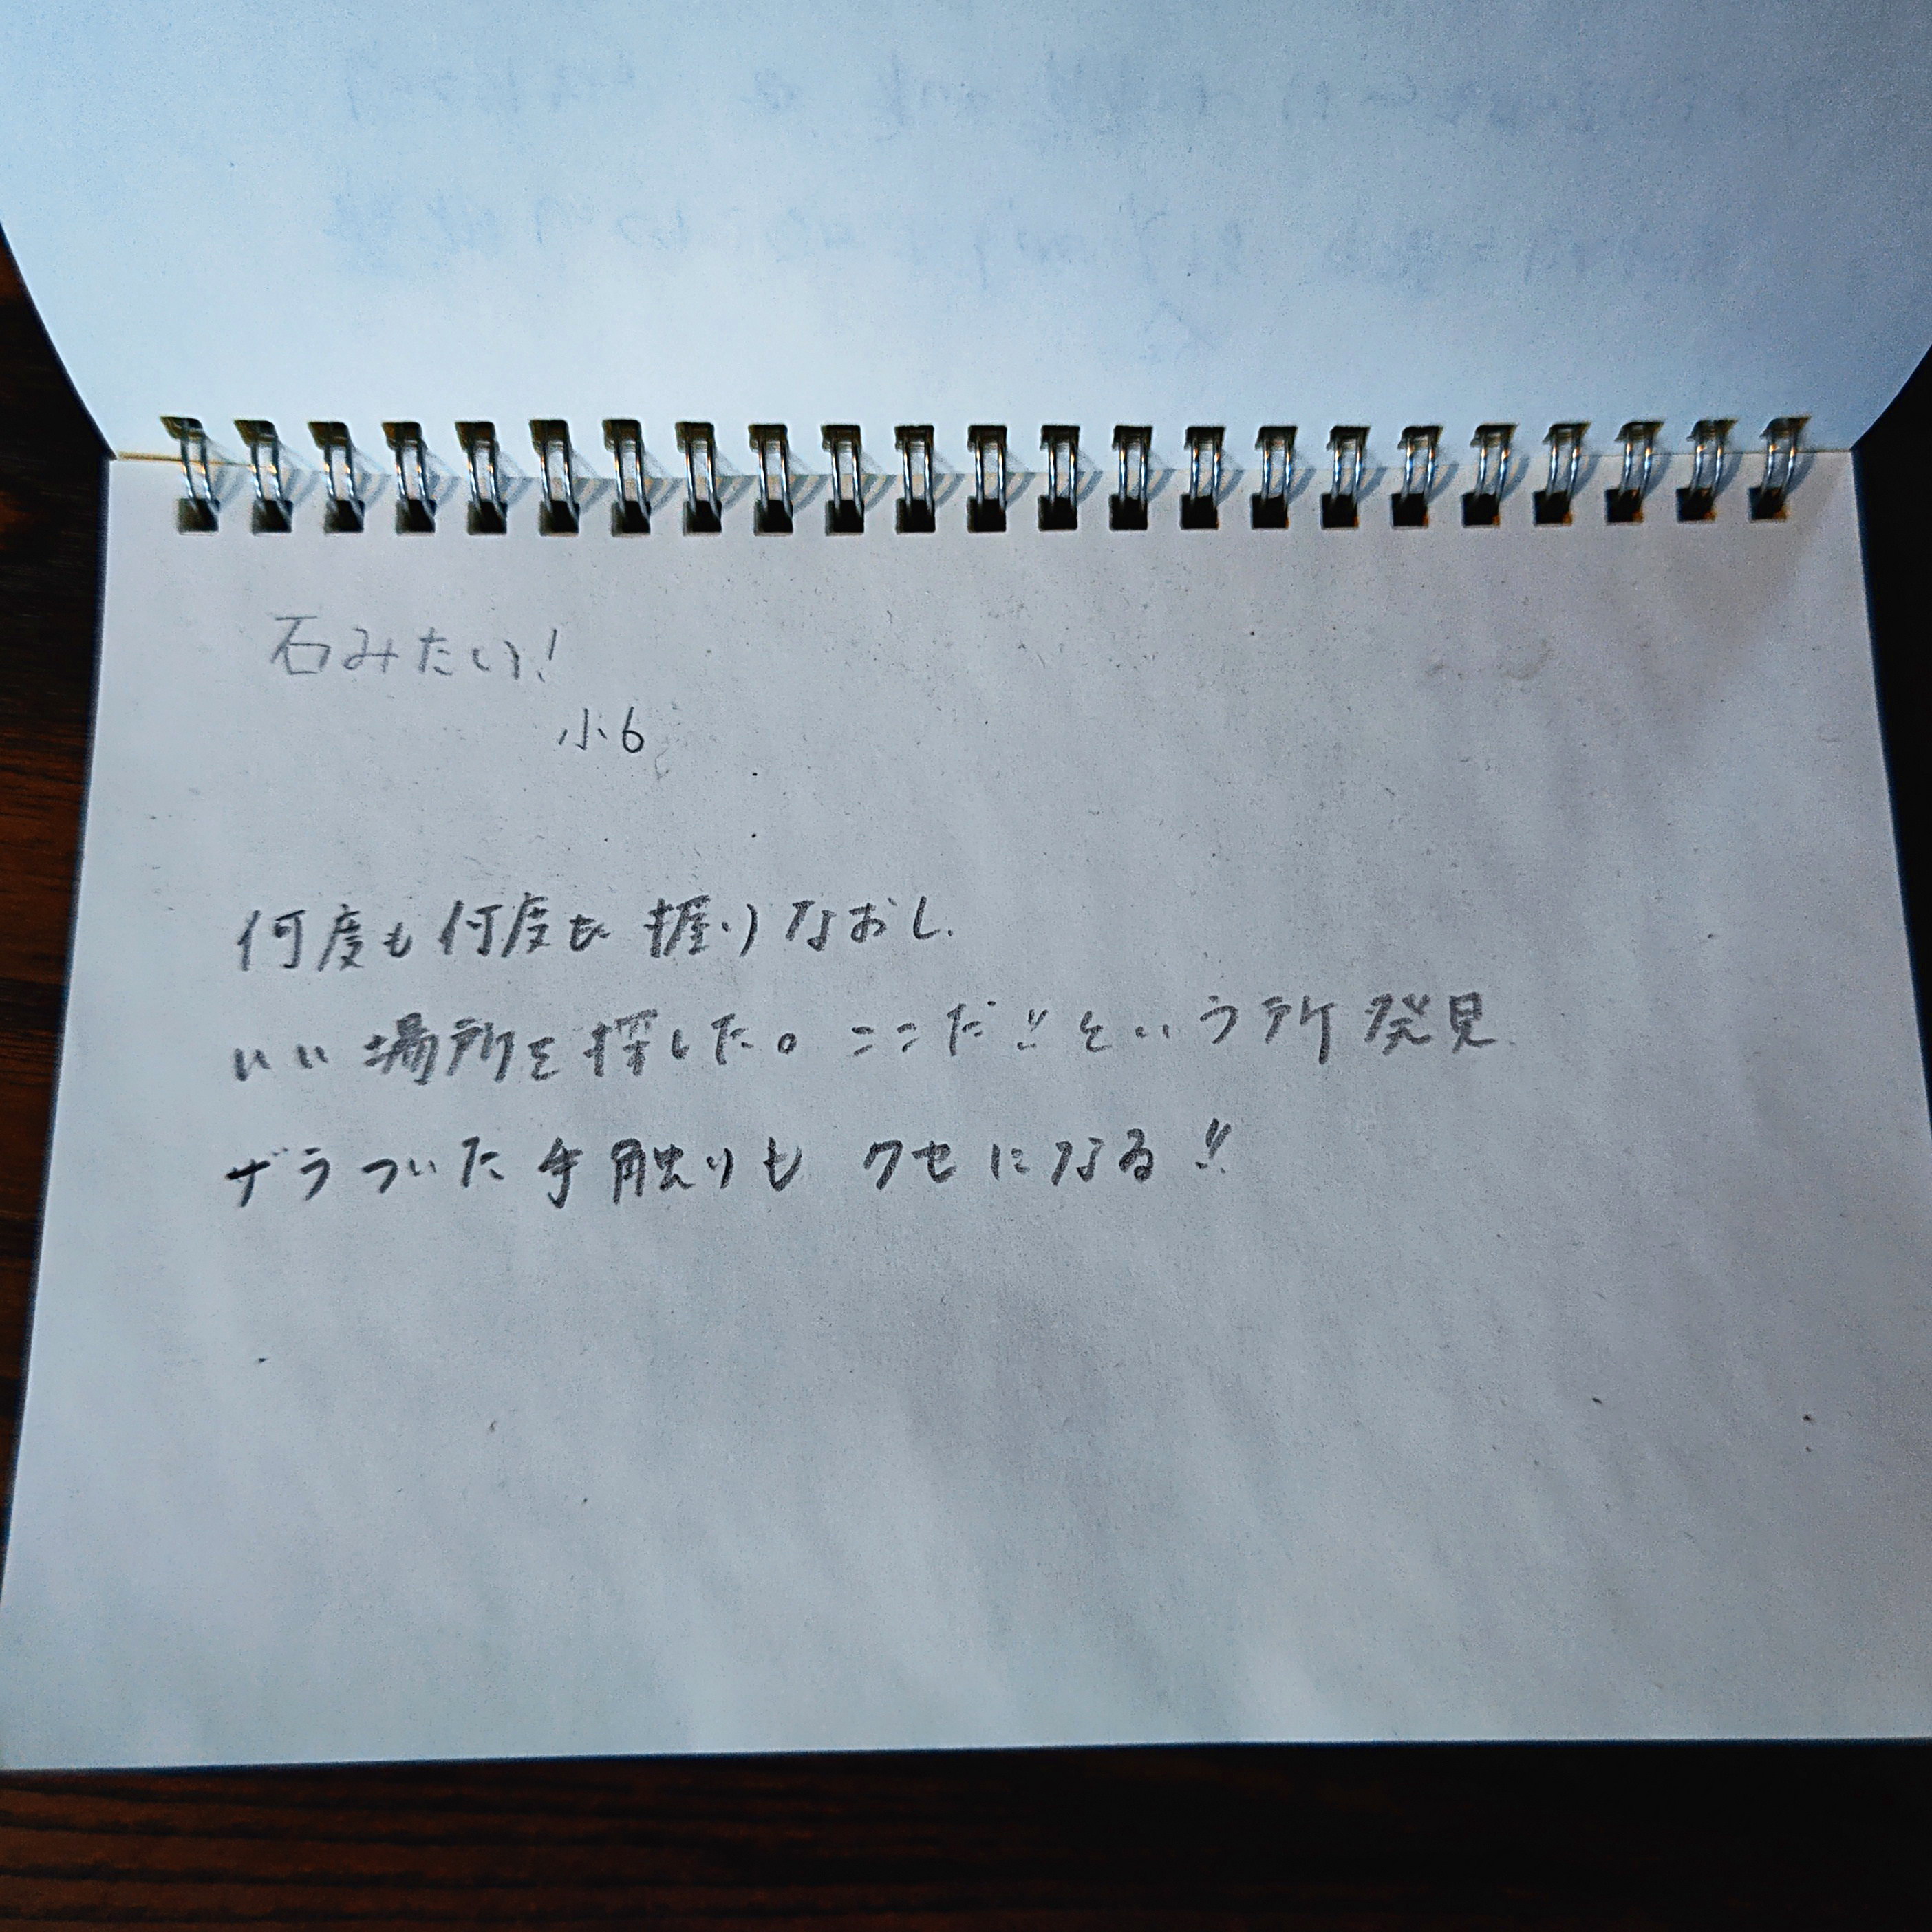 石みたい!
小6
何度も何度も握りなおし
いい場所を探した。ここだ!!という所発見
ザラついた手触りもクセになる!!